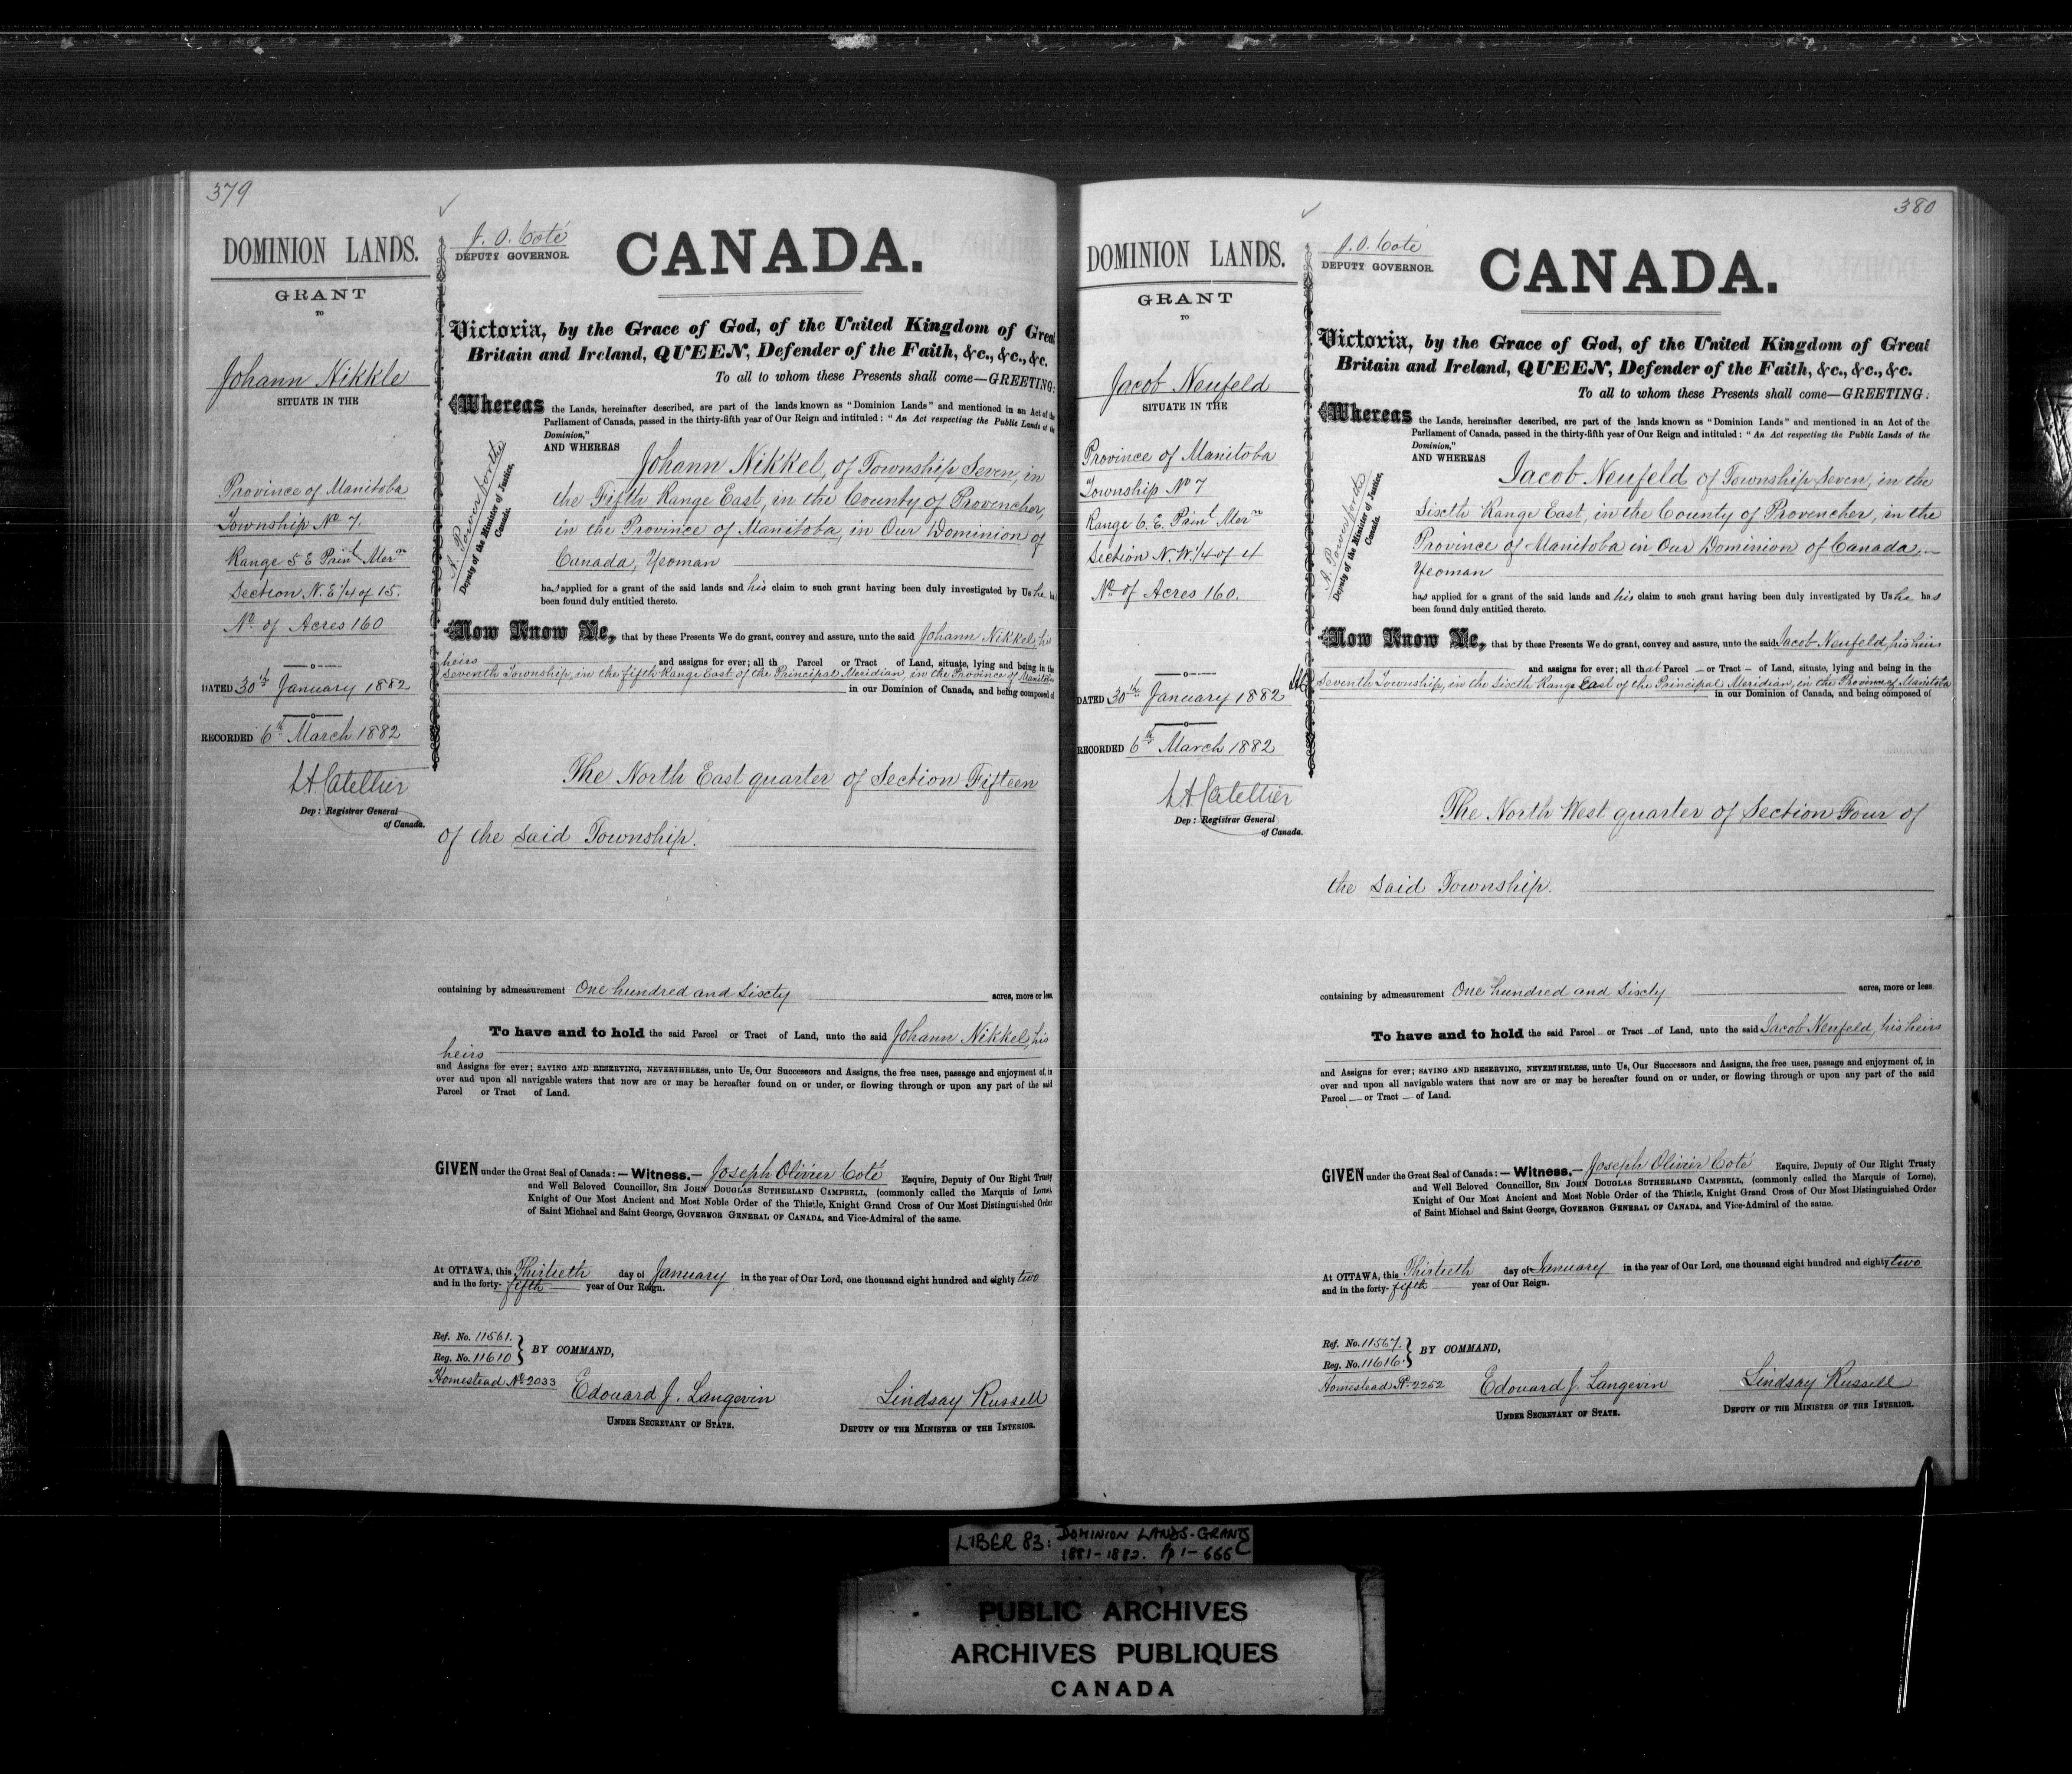 379
DOMINION LANDS.
GRANT
TO
Johann Nikkle
SITUATE IN THE
Province of Manitoba
Township No 7.
Range 5 E Prinl Mern
Section N. E 1/4 of 15.
No. of Acres 160
DATED 30th January 1882
RECORDED 6th March 1882
L A Catellier
Dep: Registrar General
of Canada.
J. O. Coté
DEPUTY GOVERNOR.
CANADA.
A. Power for the
Deputy of the Minister of Justice,
Canada.
Victoria, by the Grace of God, of the United Kingdom of Great
Britain and Ireland, QUEEN, Defender of the Faith, &c., &c., &c.
To all to whom these Presents shall come—GREETING:
Whereas the Lands, hereinafter described, are part of the lands known as "Dominion Lands" and mentioned in an Act of the
Parliament of Canada, passed in the thirty-fifth year of Our Reign and intituled: "An Act respecting the Public Lands of the
Dominion,"
AND WHEREAS
Johann Nikkel, of Township Seven, in
the Fifth Range East, in the County of Provencher,
in the Province of Manitoba, in Our Dominion of
Canada, Yeoman
has applied for a grant of the said lands and his claim to such grant having been duly investigated by Us he has
been found duly entitled thereto.
Now Know Ye, that by these Presents We do grant, convey and assure, unto the said Johann Nikkel, his
heirs and assigns for ever; all th Parcel or Tract of Land, situate, lying and being in the
Seventh Township, in the fifth Range East of the Principal Meridian, in the Province of Manitoba
in our Dominion of Canada, and being composed of
The North East quarter of Section Fifteen
of the said Township.
containing by admeasurement One hundred and Sixty acres, more or less
To have and to hold the said Parcel or Tract of Land, unto the said Johann Nikkel, his
heirs
and Assigns for ever; SAVING AND RESERVING, NEVERTHELESS, unto Us, Our Successors and Assigns, the free uses, passage and enjoyment of, in
over and upon all navigable waters that now are or may be hereafter found on or under, or flowing through or upon any part of the said
Parcel or Tract of Land.
GIVEN under the Great Seal of Canada:— Witness,— Joseph Olivier Coté Esquire, Deputy of Our Right Trusty
and Well Beloved Councillor, SIR JOHN DOUGLAS SUTHERLAND CAMPBELL, (commonly called the Marquis of Lorne),
Knight of Our Most Ancient and Most Noble Order of the Thistle, Knight Grand Cross of Our Most Distinguished Order
of Saint Michael and Saint George, GOVERNOR GENERAL OF CANADA, and Vice-Admiral of the same.
At OTTAWA, this Thirtieth day of January in the year of Our Lord, one thousand eight hundred and eighty two
and in the forty-fifth year of Our Reign.
Ref. No. 11561.
Reg. No. 11610
BY COMMAND,
Homestead No 2033
Edouard J. Langevin
UNDER SECRETARY OF STATE.
Lindsay Russell
DEPUTY OF THE MINISTER OF THE INTERIOR.
380
DOMINION LANDS.
GRANT
TO
Jacob Neufeld
SITUATE IN THE
Province of Manitoba
Township No 7
Range 6. E. Prinl Mern
Section N. W. 1/4 of 4
No of Acres 160.
DATED 30th January 1882
RECORDED 6th March 1882
L A Catellier
Dep: Registrar General
of Canada.
J. O. Coté
DEPUTY GOVERNOR.
CANADA.
A. Power for the
Deputy of the Minister of Justice,
Canada.
Victoria, by the Grace of God, of the United Kingdom of Great
Britain and Ireland, QUEEN, Defender of the Faith, &c., &c., &c.
To all to whom these Presents shall come—GREETING:
Whereas the Lands, hereinafter described, are part of the lands known as "Dominion Lands" and mentioned in an Act of the
Parliament of Canada, passed in the thirty-fifth year of Our Reign and intituled: "An Act respecting the Public Lands of the
Dominion,"
AND WHEREAS
Jacob Neufeld of Township Seven, in the
Sixth Range East, in the County of Provencher, in the
Province of Manitoba in Our Dominion of Canada,
Yeoman
has applied for a grant of the said lands and his claim to such grant having been duly investigated by Us he has
been found duly entitled thereto.
Now Know Ye, that by these Presents We do grant, convey and assure, unto the said Jacob Neufeld, his heirs
and assigns for ever; all that Parcel or Tract of Land, situate, lying and being in the
Seventh Township, in the Sixth Range East of the Principal Meridian, in the Province of Manitoba
in our Dominion of Canada, and being composed of
The North West quarter of Section Four of
the said Township.
containing by admeasurement One hundred and Sixty acres, more or less
To have and to hold the said Parcel or Tract of Land, unto the said Jacob Neufeld, his heirs
and Assigns for ever; SAVING AND RESERVING, NEVERTHELESS, unto Us, Our Successors and Assigns, the free uses, passage and enjoyment of, in
over and upon all navigable waters that now are or may be hereafter found on or under, or flowing through or upon any part of the said
Parcel or Tract of Land.
GIVEN under the Great Seal of Canada:— Witness,— Joseph Olivier Coté Esquire, Deputy of Our Right Trusty
and Well Beloved Councillor, SIR JOHN DOUGLAS SUTHERLAND CAMPBELL, (commonly called the Marquis of Lorne),
Knight of Our Most Ancient and Most Noble Order of the Thistle, Knight Grand Cross of Our Most Distinguished Order
of Saint Michael and Saint George, GOVERNOR GENERAL OF CANADA, and Vice-Admiral of the same.
At OTTAWA, this Thirtieth day of January in the year of Our Lord, one thousand eight hundred and eighty two
and in the forty-fifth year of Our Reign.
Ref. No. 11567.
Reg. No. 11616.
BY COMMAND,
Homestead No 2252
Edouard J. Langevin
UNDER SECRETARY OF STATE.
Lindsay Russell
DEPUTY OF THE MINISTER OF THE INTERIOR.
LIBER 83: DOMINION LANDS-GRANTS
1881-1882. Pp 1-666
PUBLIC ARCHIVES
ARCHIVES PUBLIQUES
CANADA